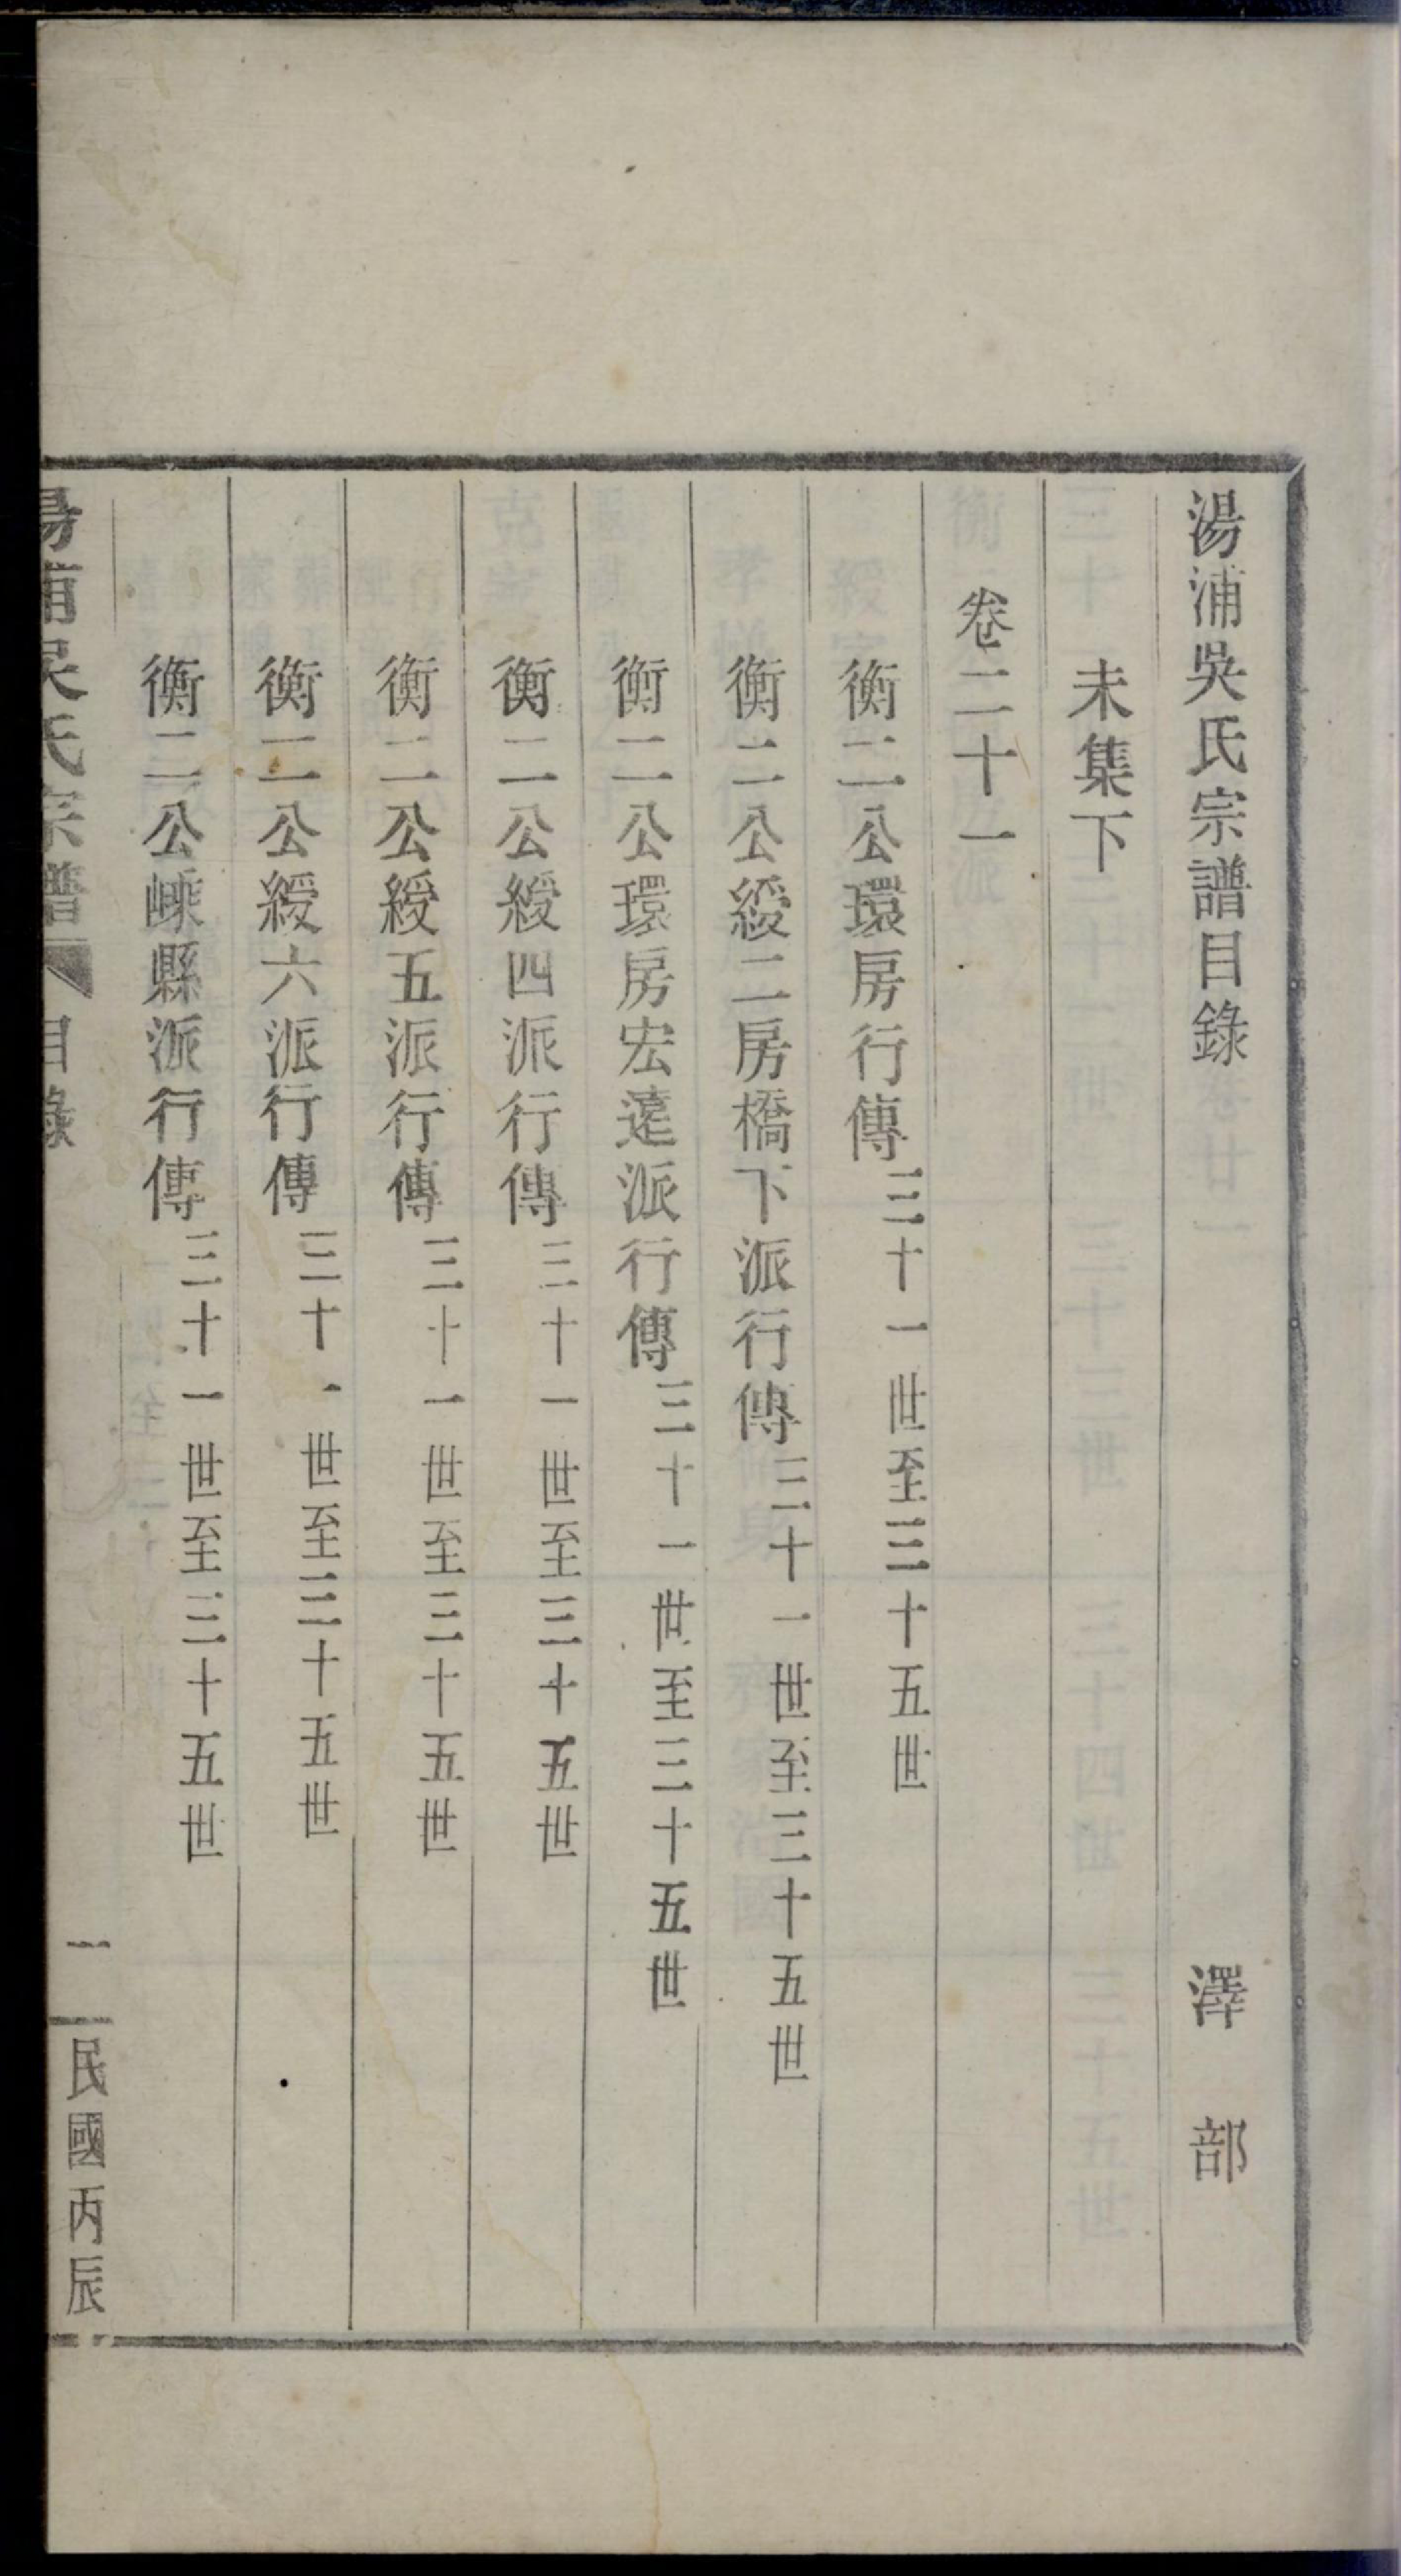 湯浦吳氏宗譜目錄 澤部
未集下
卷二十一
衡二公環房行傳三十一世至三十五世
衡二公綬二房橋下派行傳三十一世至三十五世
衡二公環房宏遠派行傳三十一世至三十五世
衡二公綬四派行傳三十一世至三十五世
衡二公綬五派行傳三十一世至三十五世
衡二公綬六派行傳三十一世至三十五世
衡二公嵊縣派行傳三十一世至三十五世
湯浦吳氏宗譜 目錄 一 民國丙辰